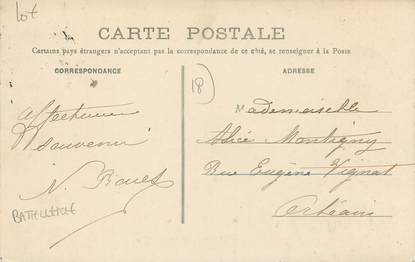 Lot
CARTE POSTALE
Certains pays étrangers n'acceptant pas la correspondance de ce côté, se renseigner à la Poste
CORRESPONDANCE
ADRESSE
18
Affectueux
souvenir
N.
Mademoiselle
Alice Montigny
Rue Eugène Vignat
Orléans